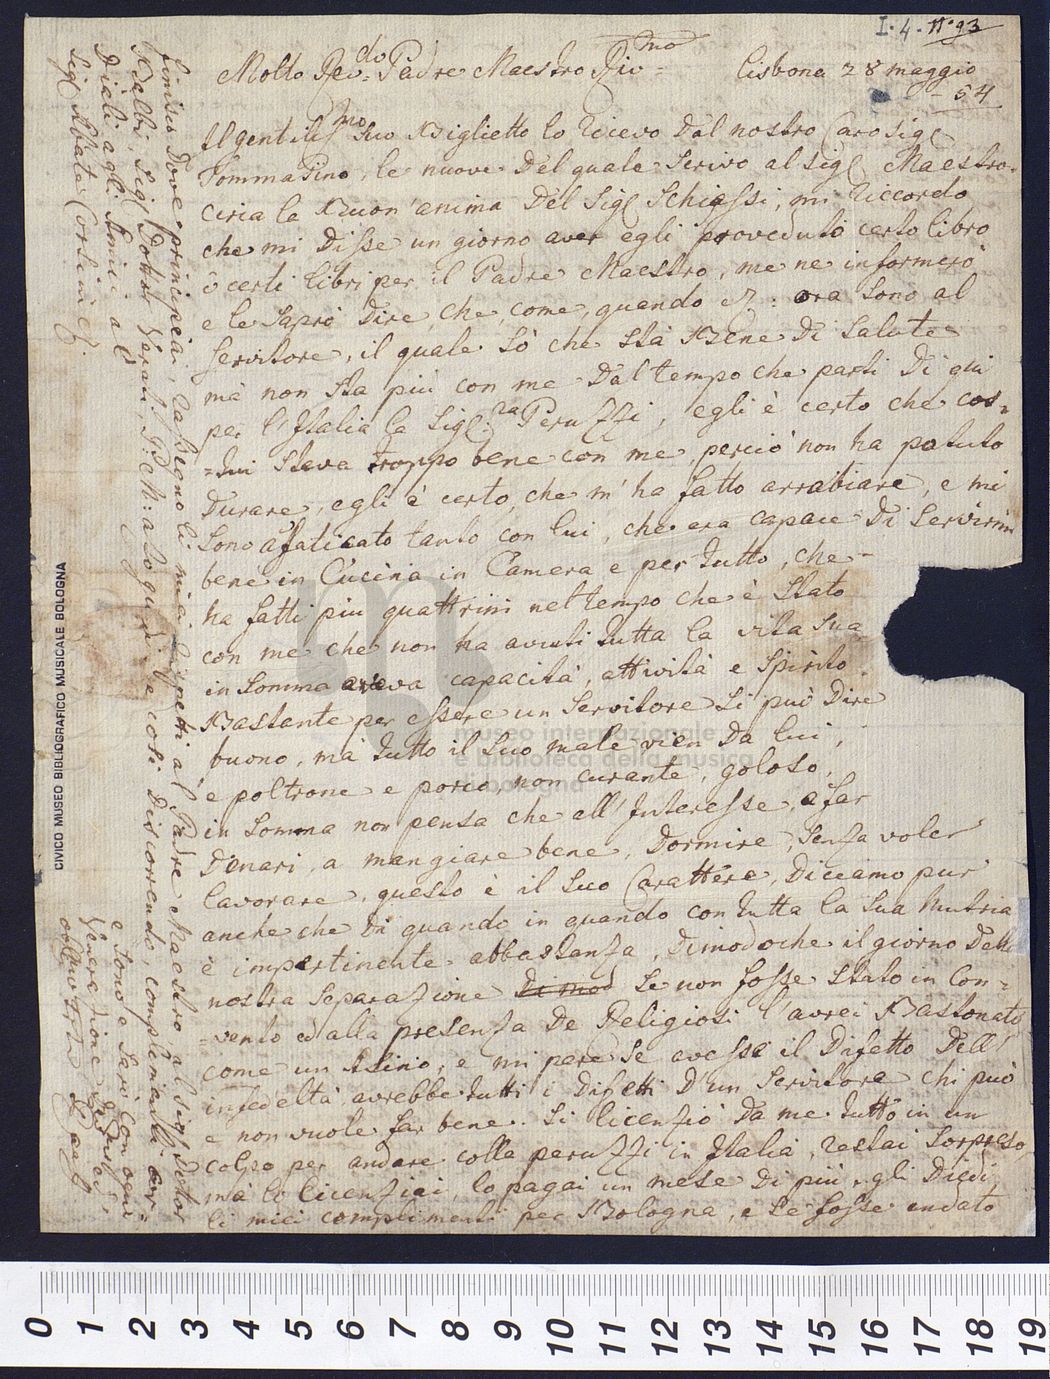 I. 4. n° 93
Molto Rev:do Padre Maestro Riv:mo Lisbona 28 maggio
- 54
Il gentiliss:mo Suo Biglietto lo ricevo dal nostro Caro Sig:
Tommasino, le nuove del quale scrivo al Sig: Maestro.
circa la Buon'anima del Sig: Schiassi, mi riccordo
che mi disse un giorno aver egli proveduto certo libro
ò certi libri per il Padre Maestro, me ne informerò
e le saprò dire che, come, quando &: ora sono al
servitore, il quale sò che stà Bene di salute
mà non sta più con me dal tempo che parti di qui
per l'Italia la Sig:ra Peruzzi, egli è certo che cos=
=tui stava troppo bene con me perciò non ha potuto
durare, egli è certo che m'ha fatto arrabiare, e mi
sono afaticato tanto con lui, che era capace di servirmi
bene in Cucina in Camera e per tutto, che
ha fatti piu quattrini nel tempo che è stato
con me che non ha avuti tutta la vita sua
in somma aveva capacità, attività e spirito
Bastante per essere un servitore si può dire
buono, ma tutto il suo male vien da lui,
è poltrone e porco, non curante, goloso,
in somma non pensa che all'Interesse, a far
denari, a mangiare bene, dormire, senza voler
lavorare, questo è il suo Carattere, diciamo pur
anche che di quando in quando con tutta la sua mutria
è impertinente abbastanza, dimodoche il giorno della
nostra separazione Di mod se non fosse stato in Con=
=vento e alla presenza de Religiosi l'avrei Bastonato
come un Asino, e mi pare se avesse il difetto dell'
infedeltà avrebbe tutti i difetti d'un servitore chi può
e non vuole far bene. Si licenziò da me tutto in un
colpo per andare colla peruzzi in Italia, restai sorpreso
mà lo licenziai, lo pagai un mese di più e gli diedi
li miei complimenti per Bologna, e se fosse andato
finisco dove principiai, rasegno li miei rispetti al Padre Maestro, al Sig: Dottor
Balbi, Sig: Dottor Verani, P: e M: a loro, e così discorrendo, complimenti cor=
diali agli Amici al
Sig: Abate Corsini &.
e sono e sarò con ogni
venerazione
CIVICO MUSEO BIBLIOGRAFICO MUSICALE BOLOGNA
museo internazionale
e biblioteca della musica
di bologna
0 1 2 3 4 5 6 7 8 9 10 11 12 13 14 15 16 17 18 19